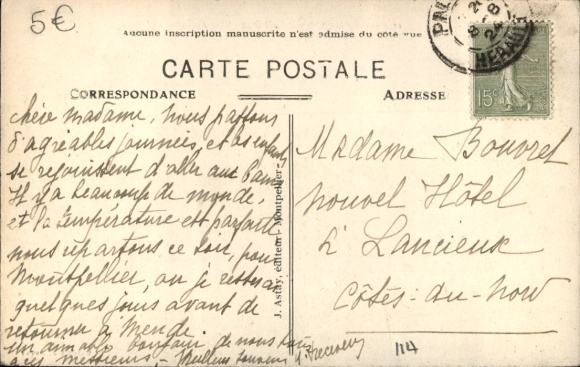 5€
Aucune inscription manuscrite n'est admise du côté vue
CARTE POSTALE
CORRESPONDANCE
ADRESSE
PAL
21
8 - 8
24
HÉRAULT
15c
chère madame, nous passons
d'agréables journées, et les enfants
se réjouissent d'aller aux bains
Il y a beaucoup de monde,
et la température est parfaite
nous repartons ce soir, pour
Montpellier, où je resterai
quelques jours avant de
retourner à Mende.
un aimable bonjour de nous tous
à ces messieurs, - Meilleurs souvenirs
J. Astay, éditeur - Montpellier
Madame Bouvret
Nouvel Hôtel
à Lancieux
Côtes-du-Nord
114